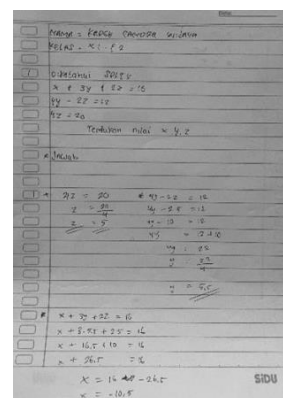 NAMA =
KELAS = XI
1 Diketahui SPLTV
x + 3y + 2z = 16
4y - 2z = 12
4z = 20
Tentukan nilai x, y, z
* Jawab
z = 20/4
z = 5
4y - 2z = 12
4y - 2.5 = 12
4y - 10 = 12
4y = 12+10
4y = 22
y = 22/4
y = 5,5
x + 3y + 2z = 16
x + 3.5,5 + 2.5 = 16
x + 16.5 + 10 = 16
x + 26.5 = 16
x = 16 - 26,5
x = -10,5
SiDU